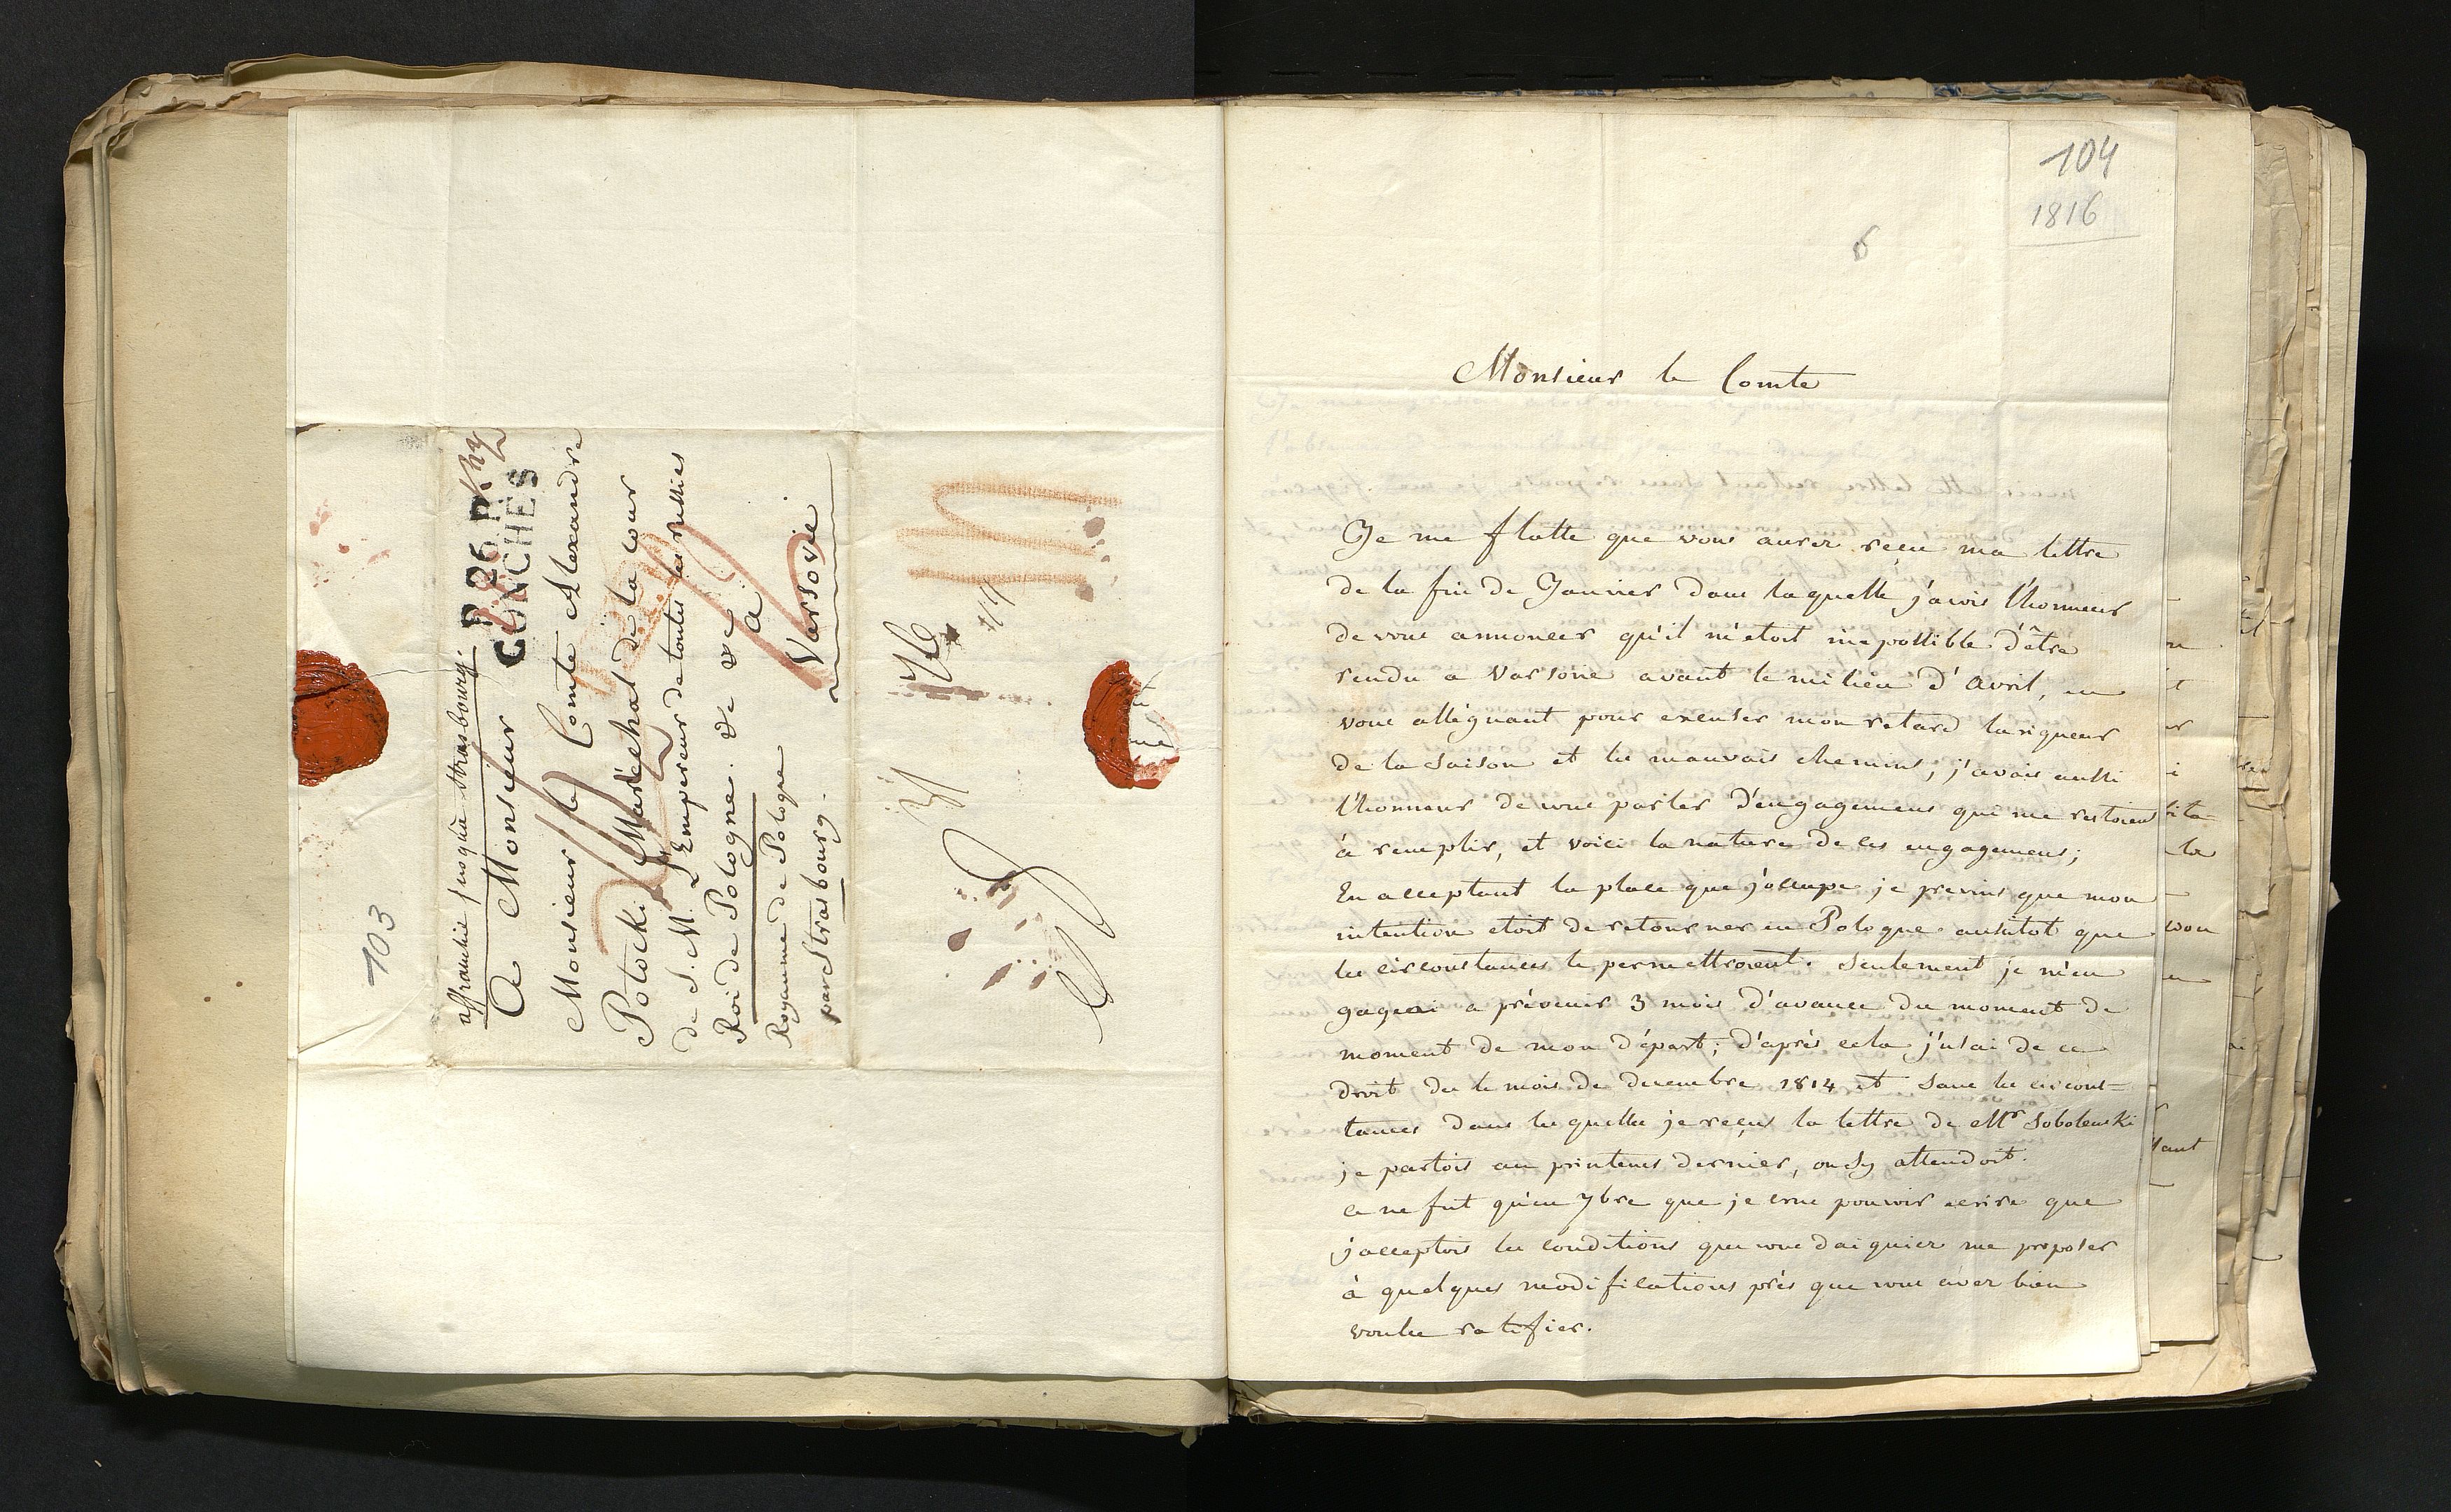 affranchie jusqu'à Strasbourg.
P.26.P.
CONCHES
A Monsieur
Monsieur le Comte Alexandre
Potocki Maréchal de la cour
de S. M. L'Empereur de toutes les russies
Roi de Pologne. &c &c &c
à
Varsovie
Royaume de Pologne
par Strasbourg.
103
104
1816
6
Monsieur le Comte
Je me flatte que vous aurez reçu ma lettre
de la fin de Janvier dans laquelle j'avois l'honneur
de vous annoncer qu'il m'étoit impossible d'être
rendu a Varsovie avant le milieu d'avril, en
vous alléguant pour excuser mon retard la rigueur
de la saison et les mauvais chemins, j'avais aussi
l'honneur de vous parler d'engagemens qui me restoient
à remplir, et voici la nature de ces engagemens;
En acceptant la place que j'occupe je previns que mon
intention etoit de retourner en Pologne aussitot que
les circonstances le permettroient. Seulement je m'en
gageai a prévenir 3 mois d'avance du moment de
moment de mon départ; d'après cela j'usai de ce
droit des le mois de decembre 1814 et sans les circons=
tances dans lesquelles je reçus la lettre de Mr Sobolewski
je partois au printems dernier, on s'y attendoit.
ce ne fut qu'en 7bre que je crus pouvoir ecrire que
j'acceptois les conditions que vous daigniez me proposer
à quelques modifications près que vous avez bien
voulu ratifier.